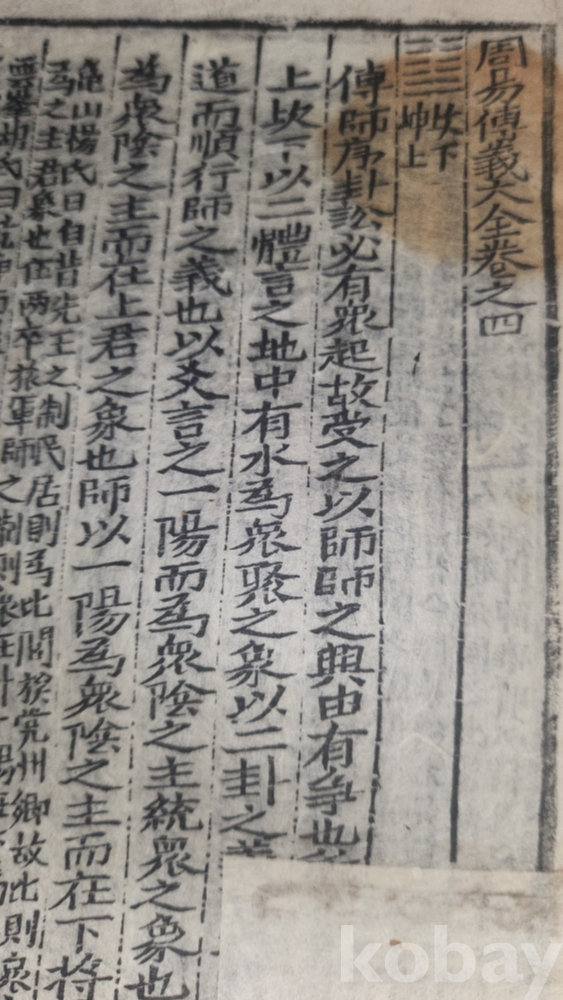 周易傳義大全卷之四
坎下
坤上
傳師序卦訟必有衆起故受之以師師之興由有爭也
上坎下以二體言之地中有水爲衆聚之象以二卦之
道而順行師之義也以爻言之一陽而爲衆陰之主統衆之象也
爲衆陰之主而在上君之象也師以一陽爲衆陰之主而在下將
龜山楊氏曰自昔先王之制民居則爲比閭族黨州鄉故比則衆
爲之主君象也伍兩卒旅軍師之制則衆在
胡氏曰
kobay